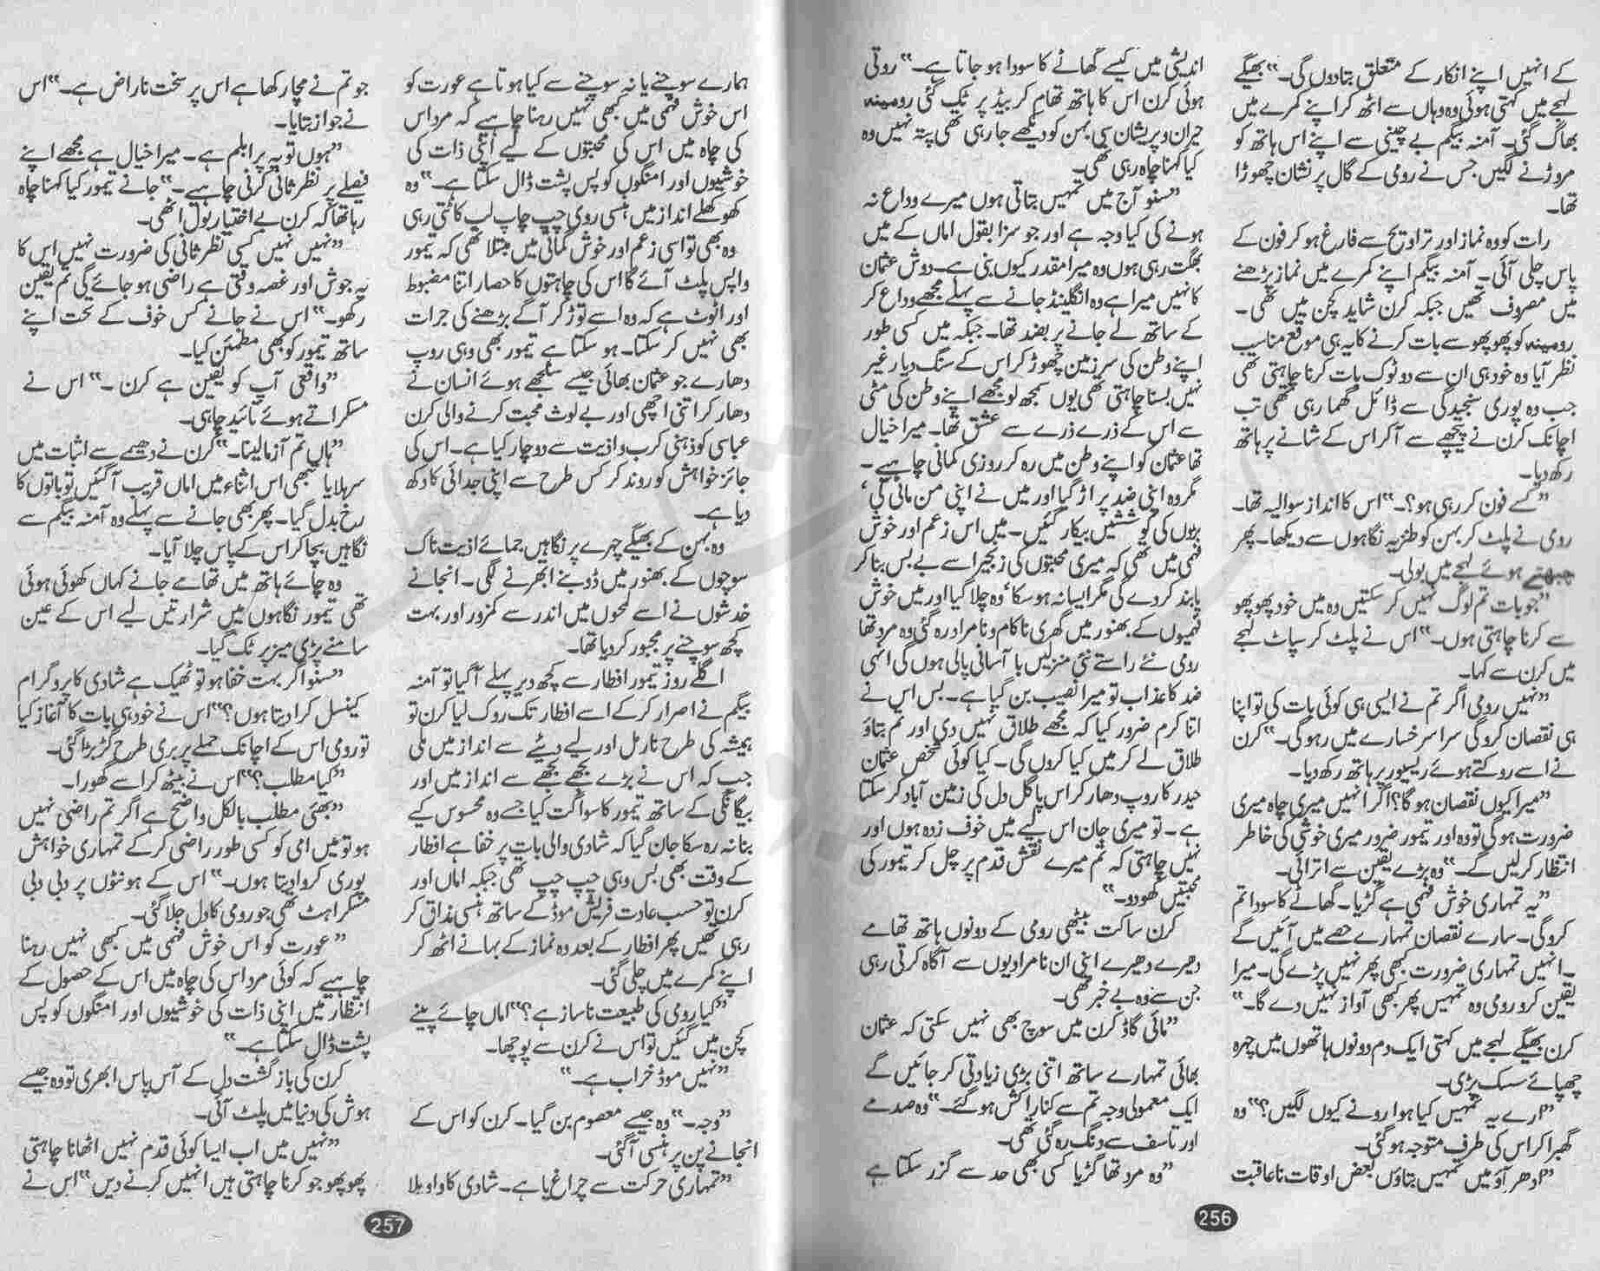 کے انہیں اپنے انکار کے متعلق بتادوں گی۔“ بھیگے
لہجے میں کہتی ہوئی وہ وہاں سے اٹھ کر اپنے کمرے میں
بھاگ گئی۔ آمنہ بیگم بے چینی سے اپنے اس ہاتھ کو
مروڑنے لگیں جس نے رومی کے گال پر نشان چھوڑا
تھا۔
رات کو وہ نماز اور تراویح سے فارغ ہو کر فون کے
پاس چلی آئی۔ آمنہ بیگم اپنے کمرے میں نماز پڑھنے
میں مصروف تھیں جبکہ کرن شاید کچن میں تھی۔
رومینہ کو پھوپھو سے بات کرنے کا یہ ہی موقع مناسب
نظر آیا وہ خود ہی ان سے دو ٹوک بات کرنا چاہتی تھی
جب وہ پوری سنجیدگی سے ڈائل گھما رہی تھی تب
اچانک کرن نے پیچھے سے آکر اس کے شانے پر ہاتھ
رکھ دیا۔
”کسے فون کر رہی ہو؟۔“ اس کا انداز سوالیہ تھا۔
رومی نے پلٹ کر بہن کو طنزیہ نگاہوں سے دیکھا۔ پھر
چبھتے ہوئے لہجے میں بولی۔
”جو بات تم لوگ نہیں کر سکتیں وہ میں خود پھوپھو
سے کرنا چاہتی ہوں۔“ اس نے پلٹ کر سپاٹ لہجے
میں کرن سے کہا۔
”نہیں رومی اگر تم نے ایسی ہی کوئی بات کی تو اپنا
ہی نقصان کرو گی سراسر خسارے میں رہو گی۔“ کرن
نے اسے روکتے ہوئے ریسیور پر ہاتھ رکھ دیا۔
”میرا کیوں نقصان ہو گا؟ اگر انہیں میری چاہ میری
ضرورت ہو گی تو وہ اور تیمور ضرور میری خوشی کی خاطر
انتظار کرلیں گے۔“ وہ بڑے یقین سے اترائی۔
”یہ تمہاری خوش فہمی ہے گڑیا۔ گھاٹے کا سودا تم
کرو گی۔ سارے نقصان تمہارے حصے میں آئیں گے
۔ انہیں تمہاری ضرورت کبھی پھر نہیں پڑے گی۔ میرا
یقین کرو رومی وہ تمہیں پھر کبھی آواز نہیں دے گا۔“
کرن بھیگے لہجے میں کہتی ایک دم دونوں ہاتھوں میں چہرہ
چھپائے سسک پڑی۔
”ارے یہ تمہیں کیا ہوا رونے کیوں لگیں؟“ وہ
گھبرا کر اس کی طرف متوجہ ہو گئی۔
”ادھر آؤ میں تمہیں بتاؤں بعض اوقات ناعاقبت
اندیشی میں کیسے گھاٹے کا سودا ہو جاتا ہے۔“ روتی
ہوئی کرن اس کا ہاتھ تھام کر بیڈ پر ٹک گئی رومینہ
حیران و پریشان سی بہن کو دیکھے جا رہی تھی پتہ نہیں وہ
کیا کہنا چاہ رہی تھی۔
”سنو آج میں تمہیں بتاتی ہوں میرے وداع نہ
ہونے کی کیا وجہ ہے اور جو سزا بقول اماں کے میں
بھگت رہی ہوں وہ میرا مقدر کیوں بنی ہے۔ دوش عثمان
کا نہیں میرا ہے وہ انگلینڈ جانے سے پہلے مجھے وداع کر
کے ساتھ لے جانے پر بضد تھا۔ جبکہ میں کسی طور
اپنے وطن کی سرزمین چھوڑ کر اس کے سنگ دیار غیر
نہیں بسنا چاہتی تھی یوں سمجھ لو مجھے اپنے وطن کی مٹی
سے اس کے ذرے ذرے سے عشق تھا۔ میرا خیال
تھا عثمان کو اپنے وطن میں رہ کر روزی کمانی چاہیے۔
مگر وہ اپنی ضد پر اڑ گیا اور میں نے اپنی من مانی کی،
بڑوں کی کوششیں بیکار گئیں۔ میں اس زعم اور خوش
فہمی میں تھی کہ میری محبتوں کی زنجیر اسے بے بس بنا کر
پابند کردے گی مگر ایسا نہ ہو سکا، وہ چلا گیا اور میں خوش
فہمیوں کے بھنور میں گھری ناکام و نامراد رہ گئی وہ مرد تھا
رومی نئے راستے نئی منزلیں با آسانی پالی ہوں گی انہی
ضد کا عذاب تو میرا نصیب بن گیا ہے۔ بس اس نے
اتنا کرم ضرور کیا کہ مجھے طلاق نہیں دی اور تم بتاؤ
طلاق لے کر میں کیا کروں گی۔ کیا کوئی شخص عثمان
حیدر کا روپ دھار کر اس پاگل دل کی زمین آباد کر سکتا
ہے۔ تو میری جان اس لیے میں خوف زدہ ہوں اور
نہیں چاہتی کہ تم میرے نقش قدم پر چل کر تیمور کی
محبتیں کھو دو۔“
کرن ساکت بیٹھی رومی کے دونوں ہاتھ تھامے
دھیرے دھیرے اپنی ان نامرادیوں سے آگاہ کرتی رہی
جن سے وہ بے خبر تھی۔
”مائی گاڈ کرن میں سوچ بھی نہیں سکتی کہ عثمان
بھائی تمہارے ساتھ اتنی بڑی زیادتی کر جائیں گے
ایک معمولی وجہ تم سے کنارا کش ہو گئے۔“ وہ صدمے
اور تاسف سے دنگ رہ گئی تھی۔
”وہ مرد تھا گڑیا کسی بھی حد سے گزر سکتا ہے
256
ہمارے سوچنے یا نہ سوچنے سے کیا ہوتا ہے عورت کو
اس خوش فہمی میں کبھی نہیں رہنا چاہیے کہ مرد اس
کی چاہ میں اس کی محبتوں کے لیے اپنی ذات کی
خوشیوں اور امنگوں کو پس پشت ڈال سکتا ہے۔“ وہ
کھوکھلے انداز میں ہنسی رومی چپ چاپ لب کاٹتی رہی
وہ بھی تو اسی زعم اور خوش گمانی میں مبتلا تھی کہ تیمور
واپس پلٹ آئے گا اس کی چاہتوں کا حصار اتنا مضبوط
اور اٹوٹ ہے کہ وہ اسے توڑ کر آگے بڑھنے کی جرات
بھی نہیں کر سکتا۔ ہو سکتا ہے تیمور بھی وہی روپ
دھارے جو عثمان بھائی جیسے سلجھے ہوئے انسان نے
دھار کر اتنی اچھی اور بے لوث محبت کرنے والی کرن
عباسی کو ذہنی کرب و اذیت سے دوچار کیا ہے۔ اس کی
جائز خواہش کو روند کر کس طرح سے اپنی جدائی کا دکھ
دیا ہے۔
وہ بہن کے بھیگے چہرے پر نگاہیں جمائے اذیت ناک
سوچوں کے بھنور میں ڈوبنے ابھرنے لگی۔ انجانے
خدشوں نے اسے لمحوں میں اندر سے کمزور اور بہت
کچھ سوچنے پر مجبور کر دیا تھا۔
اگلے روز تیمور افطار سے کچھ دیر پہلے آگیا تو آمنہ
بیگم نے اصرار کرکے اسے افطار تک روک لیا کرن تو
ہمیشہ کی طرح نارمل اور لیے دیئے سے انداز میں ملی
جب کہ اس نے بڑے بجھے بجھے سے انداز میں اور
بیگانگی کے ساتھ تیمور کا سواگت کیا جسے وہ محسوس کیے
بنا نہ رہ سکا جان گیا کہ شادی والی بات پر خفا ہے افطار
کے وقت بھی بس وہی چپ چپ تھی جبکہ اماں اور
کرن تو حسب عادت فریش موڈ کے ساتھ ہنسی مذاق کر
رہی تھیں پھر افطار کے بعد وہ نماز کے بہانے اٹھ کر
اپنے کمرے میں چلی گئی۔
”کیا رومی کی طبیعت ناساز ہے؟“ اماں چائے پینے
کچن میں گئیں تو اس نے کرن سے پوچھا۔
”نہیں موڈ خراب ہے۔“
”وجہ۔“ وہ جیسے معصوم بن گیا۔ کرن کو اس کے
انجانے پن پر ہنسی آگئی۔
”تمہاری حرکت سے چراغ پا ہے۔ شادی کا واویلا
جو تم نے مچا رکھا ہے اس پر سخت ناراض ہے۔“ اس
نے جواز بتایا۔
”ہوں تو یہ پرابلم ہے۔ میرا خیال ہے مجھے اپنے
فیصلے پر نظر ثانی کرنی چاہیے۔“ جانے تیمور کیا کہنا چاہ
رہا تھا کہ کرن بے اختیار بول اٹھی۔
”نہیں نہیں کسی نظر ثانی کی ضرورت نہیں اس کا
یہ جوش اور غصہ وقتی ہے راضی ہو جائے گی تم یقین
رکھو۔“ اس نے جانے کس خوف کے تحت اپنے
ساتھ تیمور کو بھی مطمئن کیا۔
”واقعی آپ کو یقین ہے کرن ۔“ اس نے
مسکراتے ہوئے تائید چاہی۔
”ہاں تم آزمالینا۔“ کرن نے دھیمے سے اثبات میں
سرہلایا تبھی اس اثناء میں اماں قریب آگئیں تو باتوں کا
رخ بدل گیا۔ پھر بھی جانے سے پہلے وہ آمنہ بیگم سے
نگاہیں بچا کر اس کے پاس چلا آیا۔
وہ چائے ہاتھ میں تھامے جانے کہاں کھوئی ہوئی
تھی تیمور نگاہوں میں شرارتیں لیے اس کے عین
سامنے پڑی میز پر ٹک گیا۔
”سنو اگر بہت خفا ہو تو ٹھیک ہے شادی کا پروگرام
کینسل کرا دیتا ہوں؟“ اس نے خود ہی بات کا آغاز کیا
تو رومی اس کے اچانک حملے پر بری طرح گڑبڑا گئی۔
”کیا مطلب؟“ اس نے بیٹھ کر اسے گھورا۔
”بھئی مطلب بالکل واضح ہے اگر تم راضی نہیں
ہو تو میں امی کو کسی طور راضی کرکے تمہاری خواہش
پوری کروا دیتا ہوں۔“ اس کے ہونٹوں پر دبی دبی
مسکراہٹ تھی جو رومی کا دل جلا گئی۔
”عورت کو اس خوش فہمی میں کبھی نہیں رہنا
چاہیے کہ کوئی مرد اس کی چاہ میں اس کے حصول کے
انتظار میں اپنی ذات کی خوشیوں اور امنگوں کو پس
پشت ڈال سکتا ہے۔“
کرن کی بازگشت دل کے آس پاس ابھری تو وہ جیسے
ہوش کی دنیا میں پلٹ آئی۔
”نہیں میں اب ایسا کوئی قدم نہیں اٹھانا چاہتی
پھوپھو جو کرنا چاہتی ہیں انہیں کرنے دیں“ اس نے
257